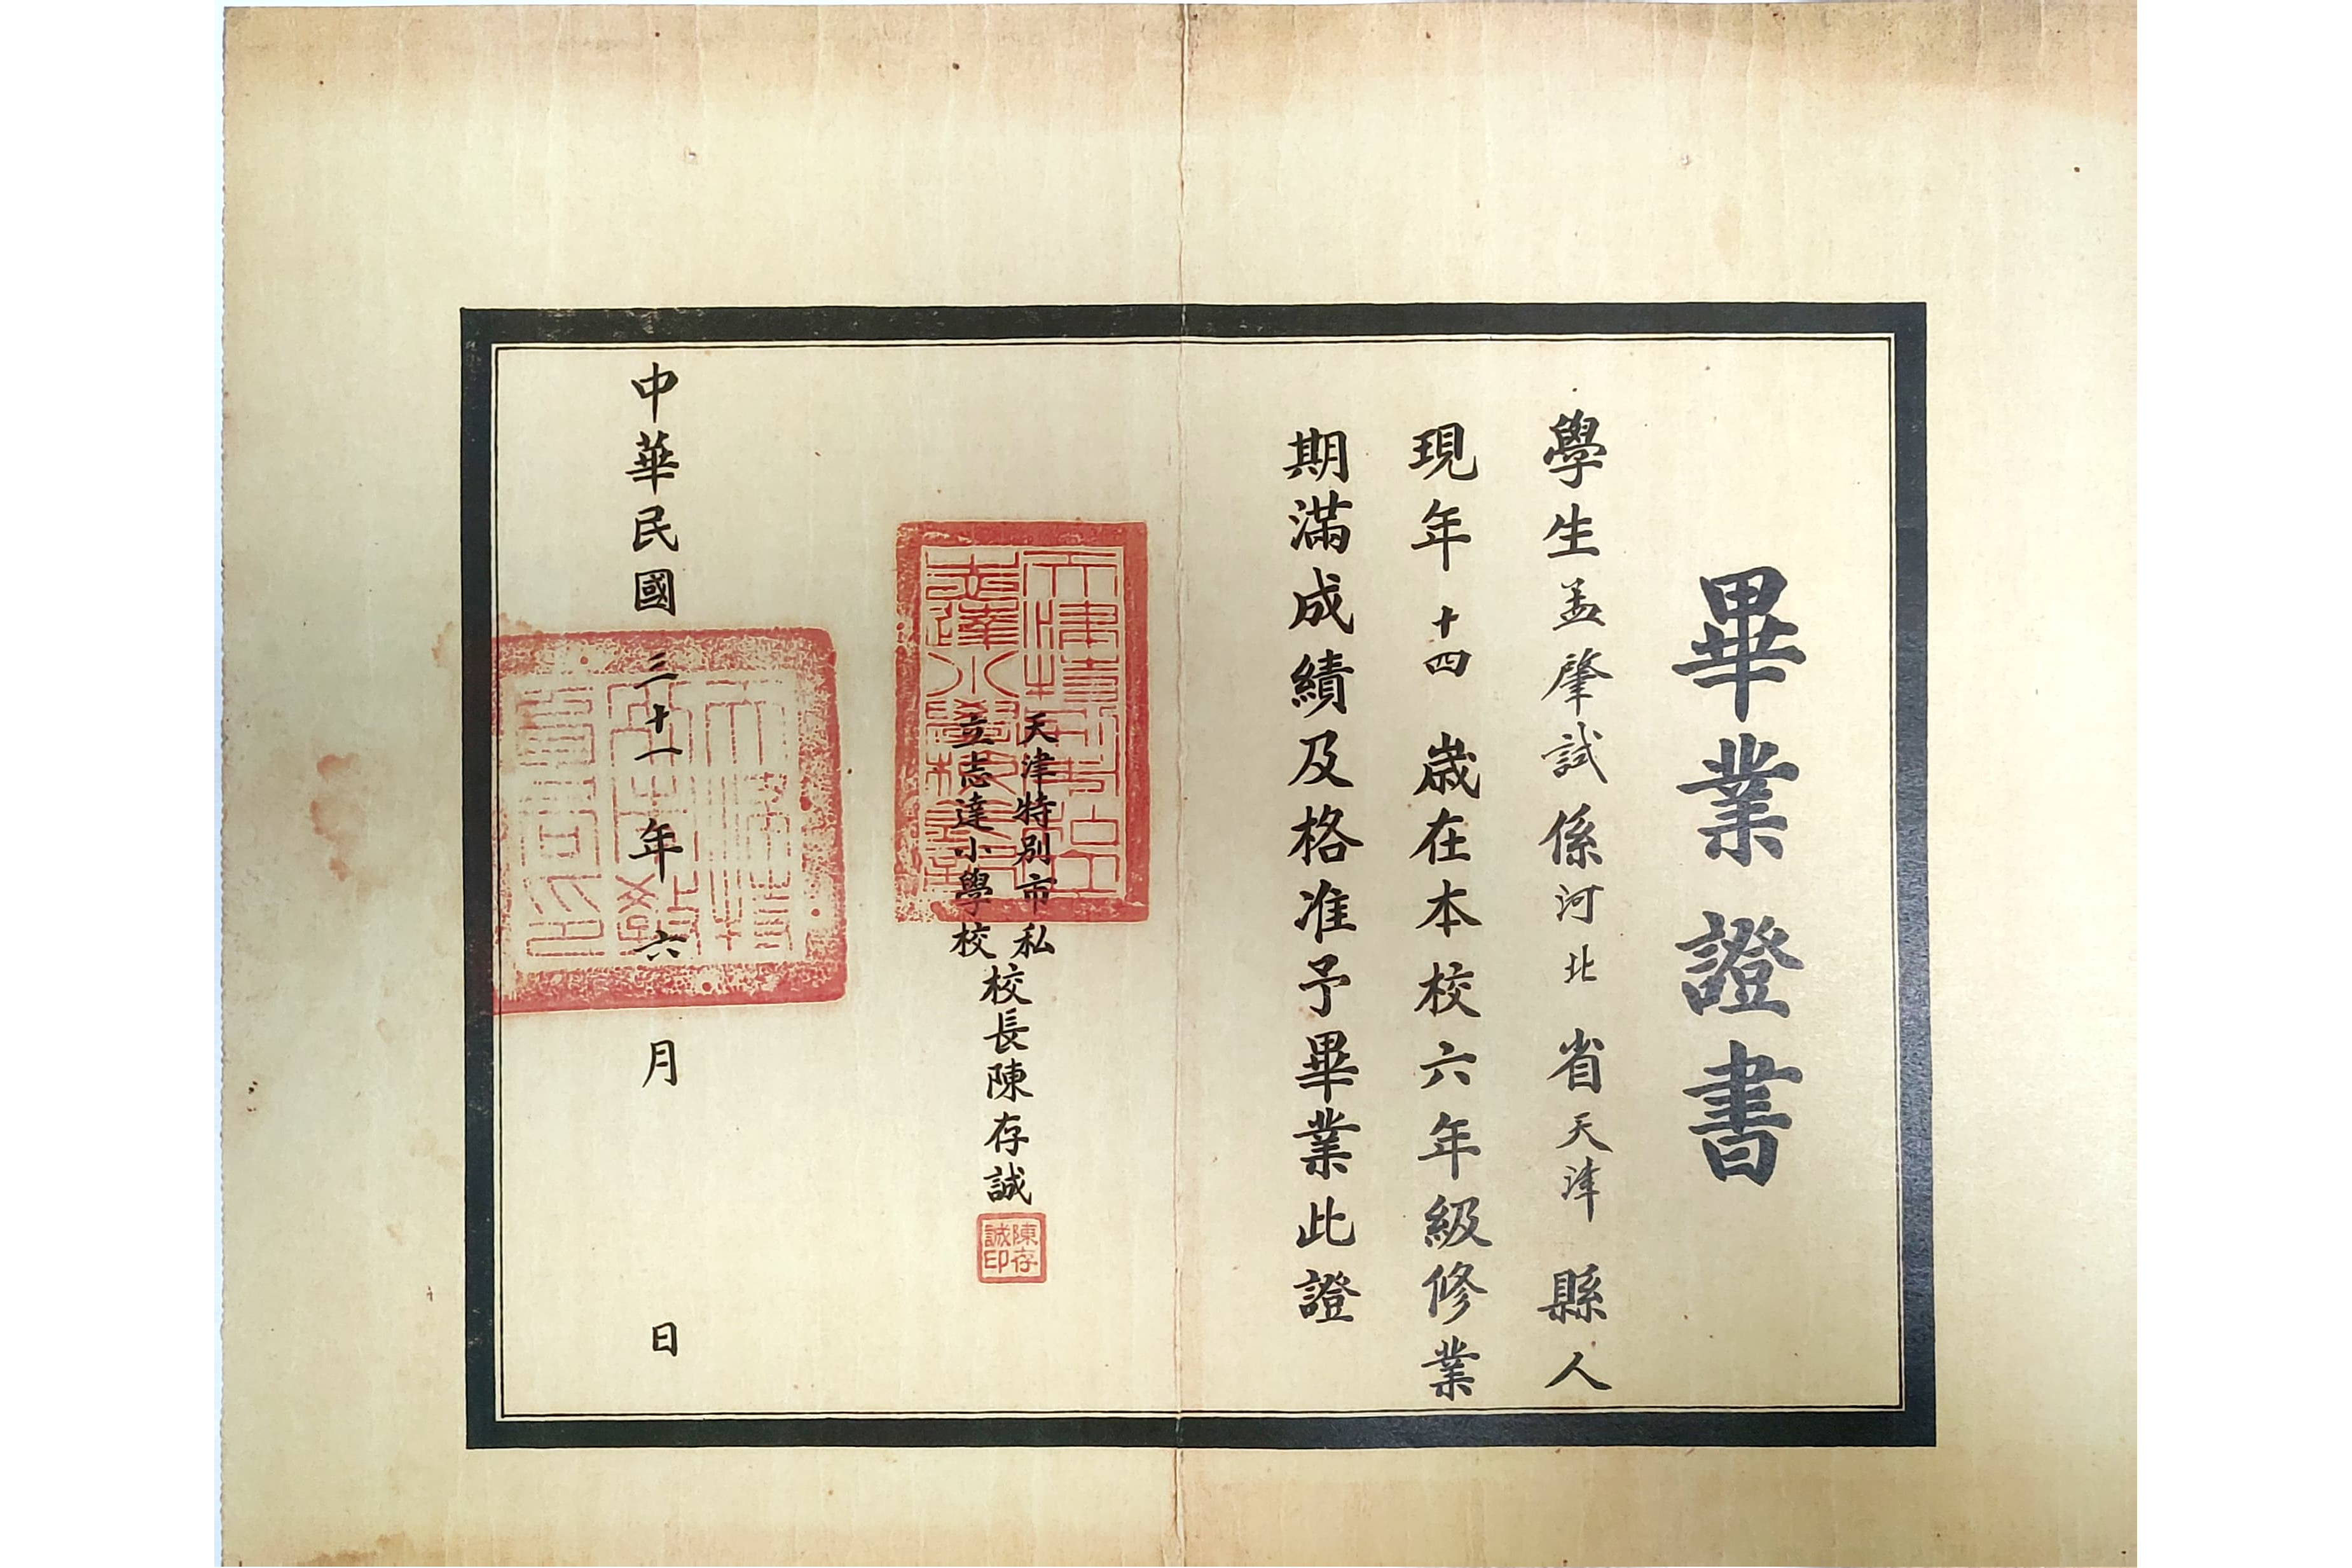 畢業證書
學生孟肇試係河北省天津縣人
現年十四歲在本校六年級修業
期滿成績及格准予畢業此證
天津特別市私
立志達小學校
校長陳存誠
陳存
誠印
中華民國三十一年六月 日